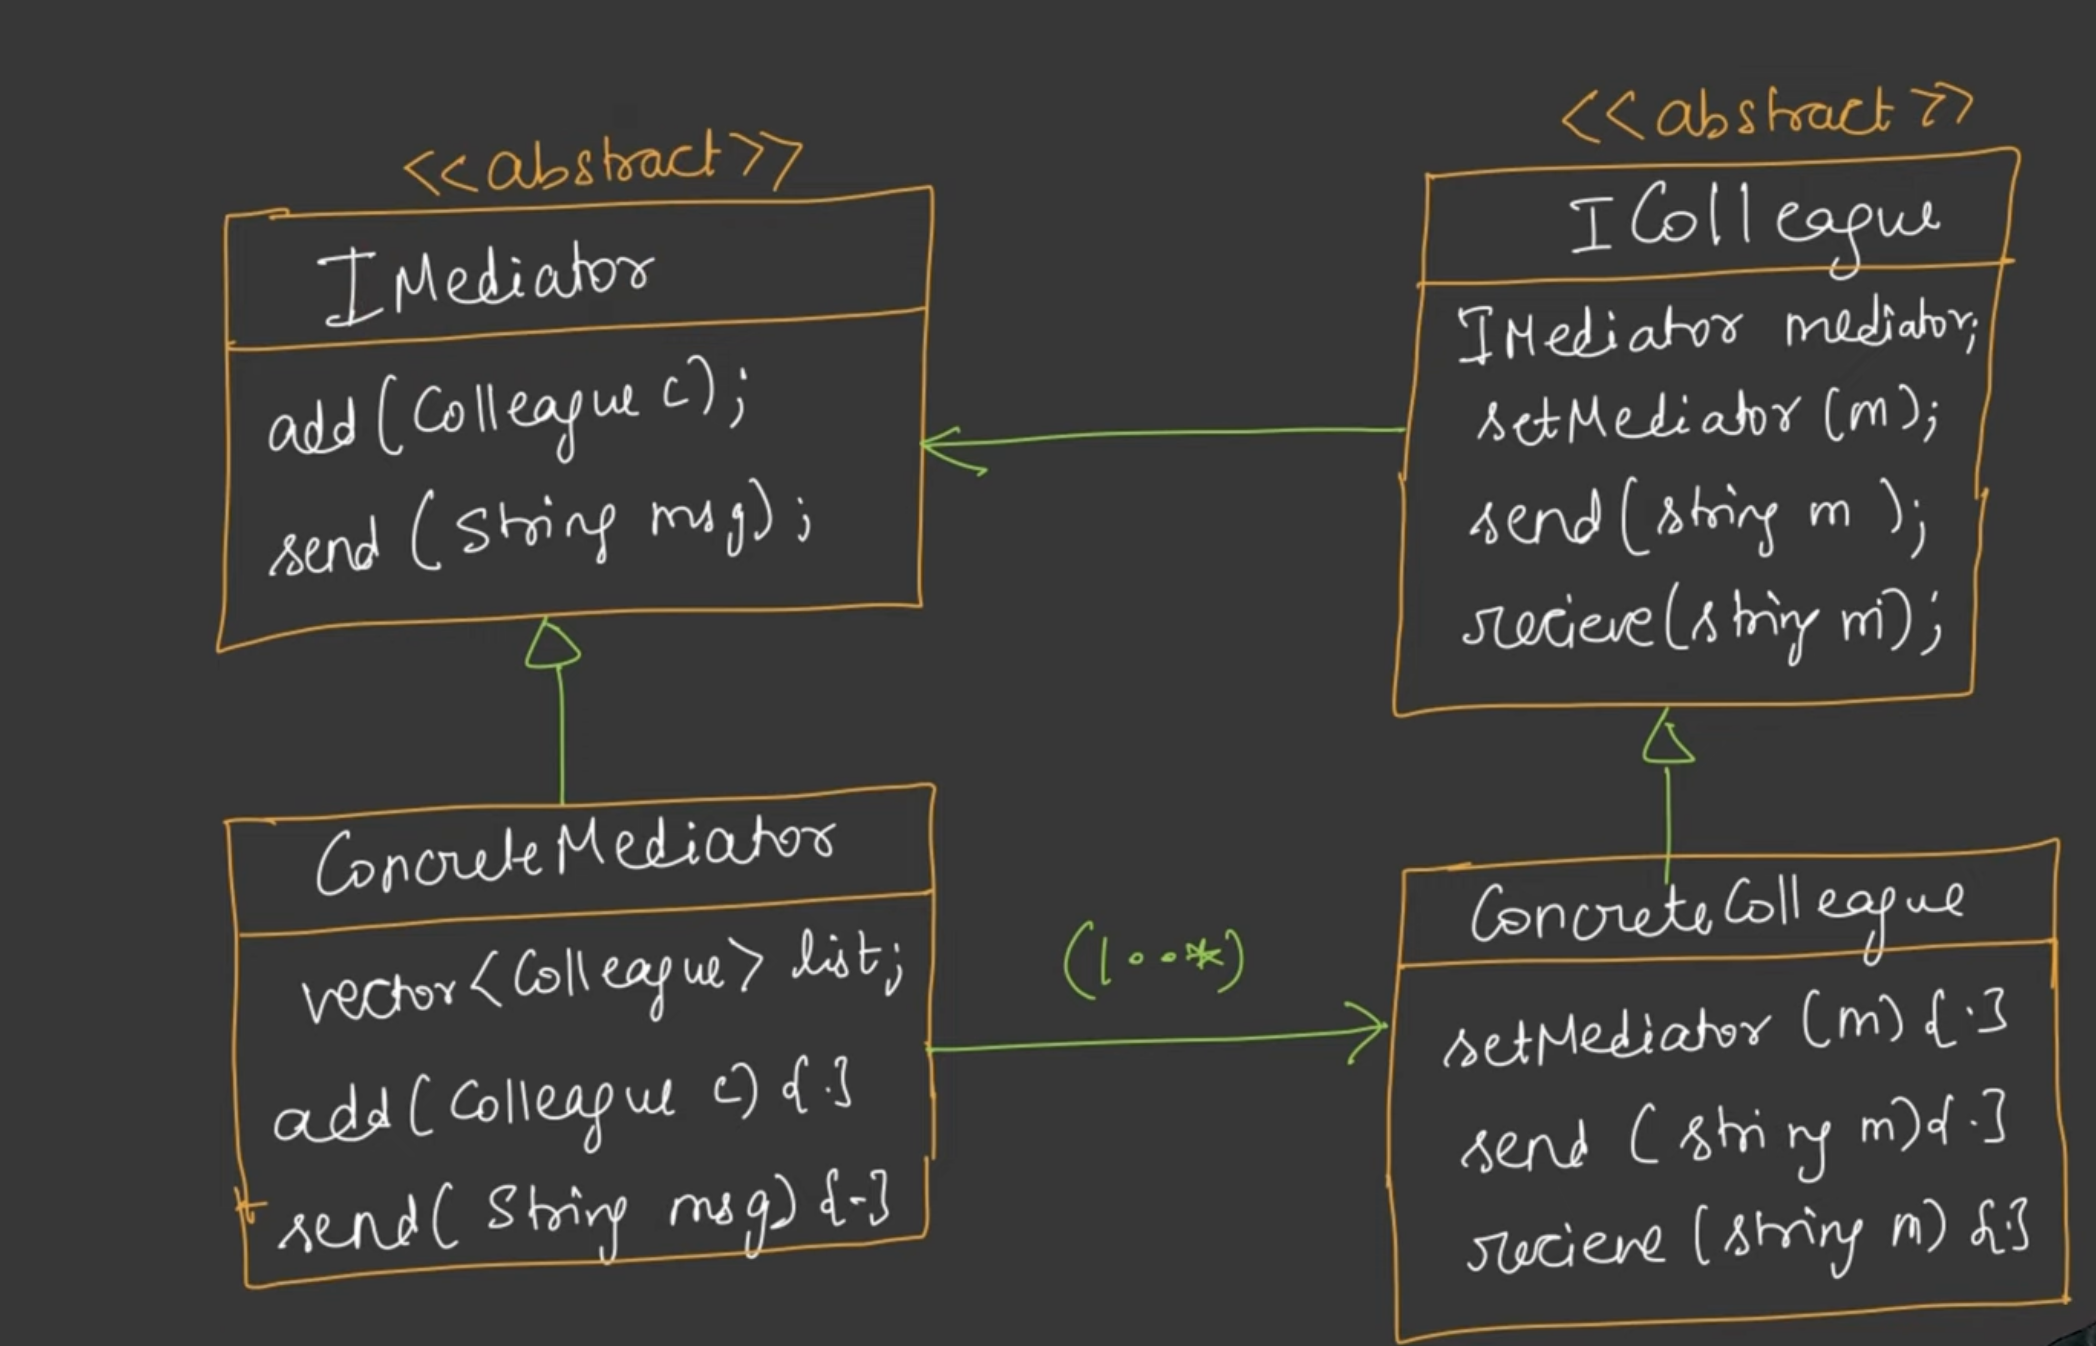 <<abstract>>
IMediator
add(Colleague c);
send(String msg);
<<abstract>>
IColleague
IMediator mediator;
setMediator(m);
send(string m);
recieve(string m);
ConcreteMediator
vector<Colleague> list;
add(Colleague c) {.}
send(String msg) {-}
(1..*)
ConcreteColleague
setMediator(m) {.}
send(string m) {.}
recieve(string m) {.}